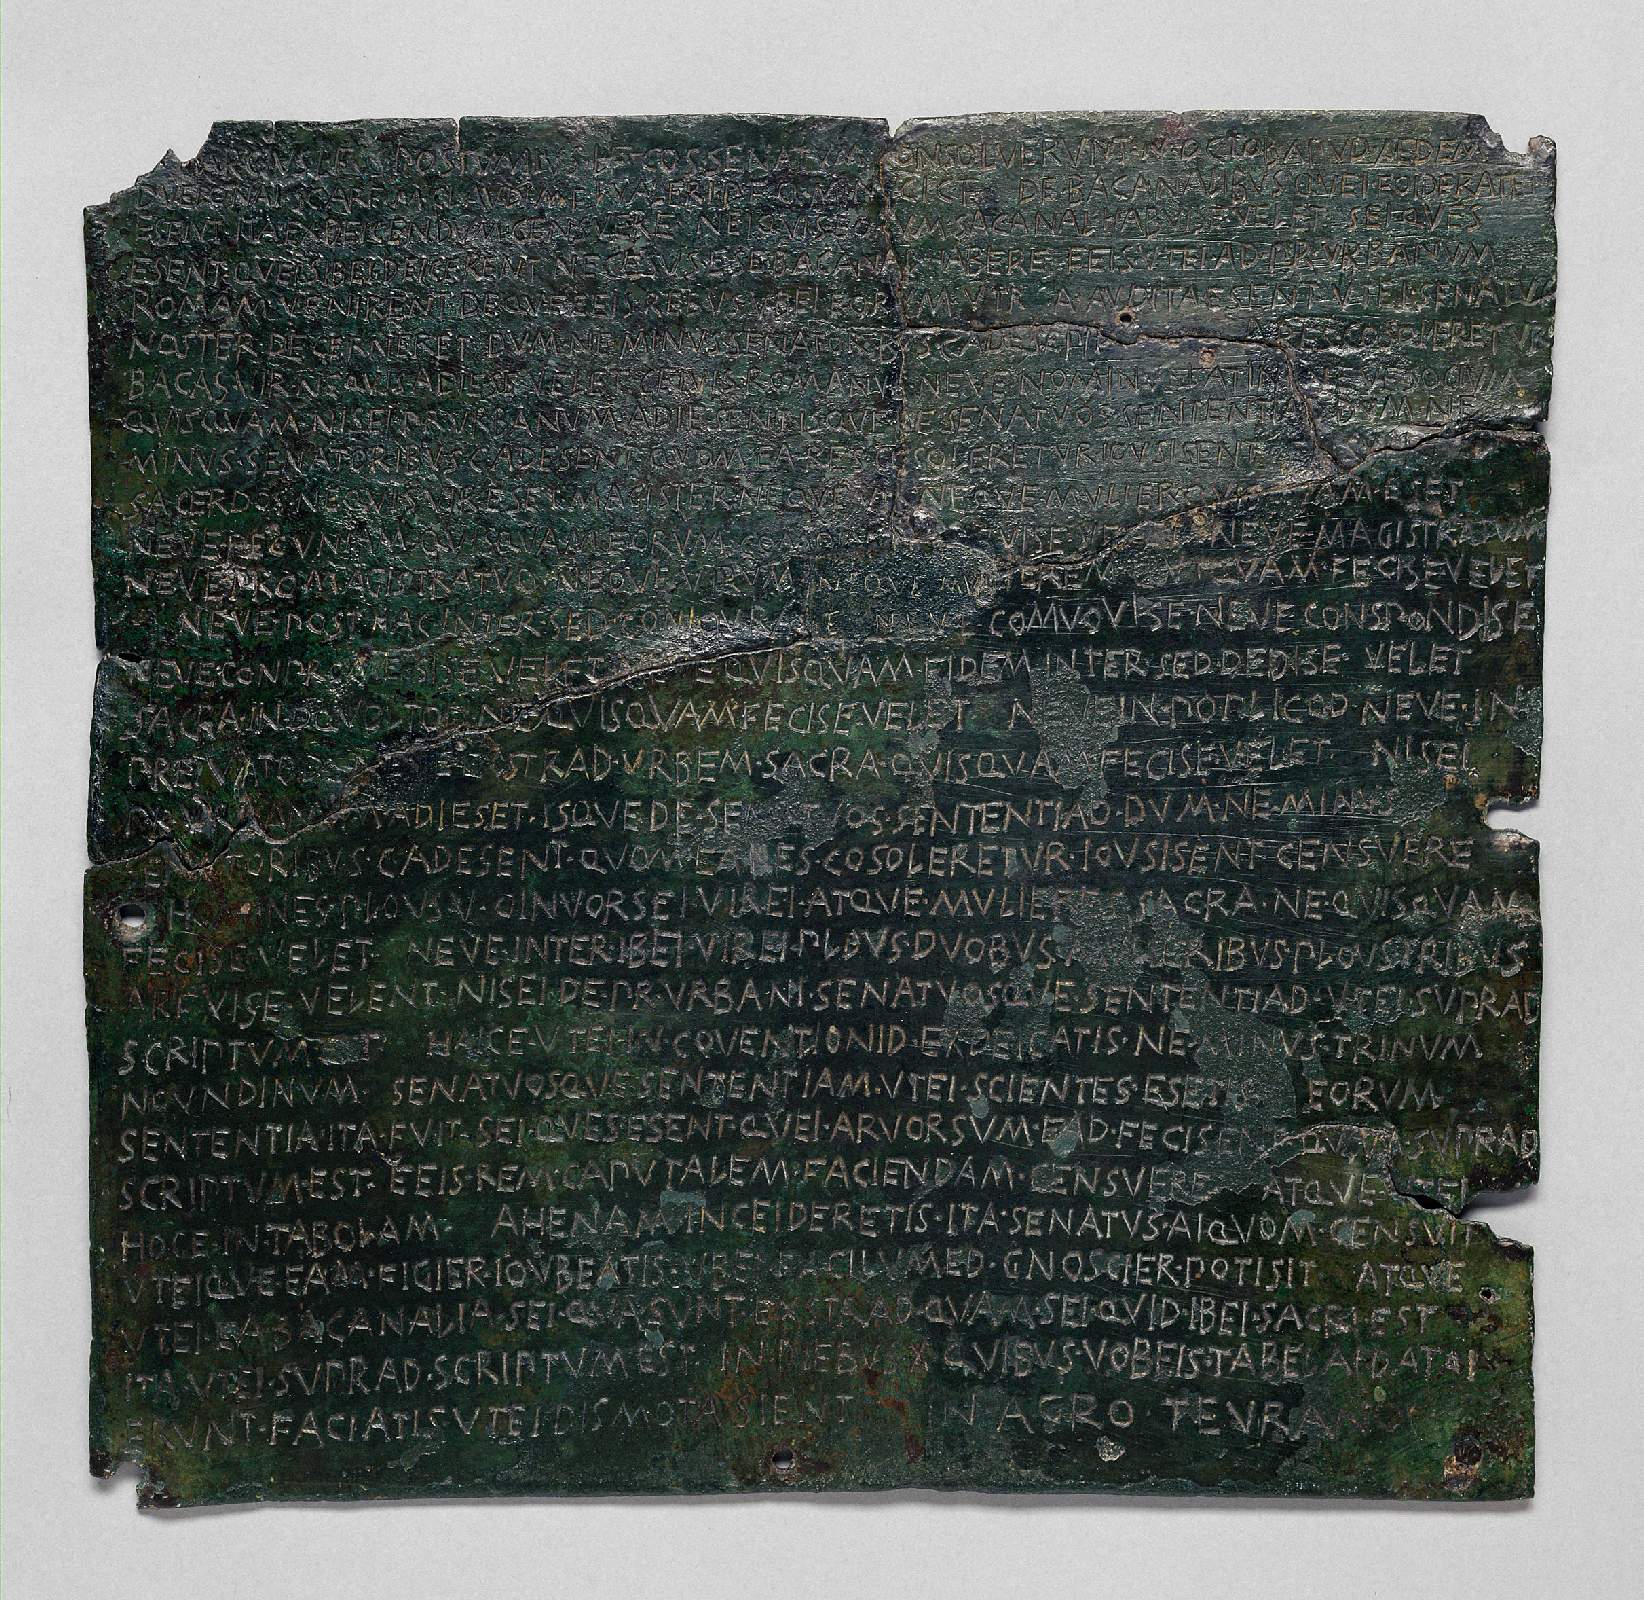 MARCIVS L F S POSTVMIVS L F COS SENATVM CONSOLVERVNT N OCTOB APVD AEDEM
DVELONAI SC ARF M CLAVDI M F L VALERI P F Q MINVCI C F DE BACANALIBVS QVEI FOIDERATEI
ESENT ITA EXDEICENDVM CENSVERE NEIQVIS EORVM SACANAL HABVISE VELET SEI QVES
ESENT QVEI SIBEI DEICERENT NECESVS ESE BACANAL HABERE EEIS VTEI AD PR VRBANVM
ROMAM VENIRENT DEQVE EEIS REBVS VBEI EORVM VTR A AVDITA ESENT VTEI SENATVS
NOSTER DECERNERET DVM NE MINVS SENATORIBVS C ADESENT A RES COSOLERETVR
BACAS VIR NEQVIS ADIESE VELET CEIVIS ROMANVS NEVE NOMINVS LATINI NEVE SOCIVM
QVISQVAM NISEI PR VRBANVM ADIESENT ISQVE DE SENATVOS SENTENTIAD DVM NE
MINVS SENATORIBVS C ADESENT QVOM EA RES COSOLERETVR IOVSISENT
SACERDOS NEQVIS VIR ESET MAGISTER NEQVE VIR NEQVE MVLIER QVISQVAM ESET
NEVE PECVNIAM QVISQVAM EORVM COMOINEM VISE VELET NEVE MAGISTRATVM
NEVE PRO MAGISTRATVO NEQVE VIRVM NEQVE MVLIEREM QVIQVAM FECISE VELET
NEVE POST HAC INTER SED CONIOVRASE NEVE COMVOVISE NEVE CONSPONDISE
NEVE CONPROMESISE VELET NEVE QVISQVAM FIDEM INTER SED DEDISE VELET
SACRA IN DQVOLTOD NE QVISQVAM FECISE VELET NEVE IN POPLICOD NEVE IN
PREIVATOD NEVE EXSTRAD VRBEM SACRA QVISQVAM FECISE VELET NISEI
PR VRBANVM ADIESET ISQVE DE SENATVOS SENTENTIAD DVM NE MINVS
SENATORIBVS C ADESENT QVOM EA RES COSOLERETVR IOVSISENT CENSVERE
HOMINES PLOVS V OINVORSEI VIREI ATQVE MVLIERES SACRA NE QVISQVAM
FECISE VELET NEVE INTER IBEI VIREI PLOVS DVOBVS MVLIERIBVS PLOVS TRIBVS
ARFVISE VELENT NISEI DE PR VRBANI SENATVOSQVE SENTENTIAD VTEI SVPRAD
SCRIPTVM EST HAICE VTEI IN COVENTIONID EXDEICATIS NE MINVS TRINVM
NOVNDINVM SENATVOSQVE SENTENTIAM VTEI SCIENTES ESETIS EORVM
SENTENTIA ITA FVIT SEI QVES ESENT QVEI ARVORSVM EAD FECISENT QVAM SVPRAD
SCRIPTVM EST EEIS REM CAPVTALEM FACIENDAM CENSVERE ATQVE VTEI
HOCE IN TABOLAM AHENAM INCEIDERETIS ITA SENATVS AIQVOM CENSVIT
VTEIQVE EAM FIGIER IOVBEATIS VBEI FACILVMED GNOSCIER POTISIT ATQVE
VTEI EA BACANALIA SEI QVA SVNT EXSTRAD QVAM SEI QVID IBEI SACRI EST
ITA VTEI SVPRAD SCRIPTVM EST IN DIEBVS X QVIBVS VOBEIS TABELAI DATAI
ERVNT FACIATIS VTEI DISMOTA SIENT IN AGRO TEVRANO